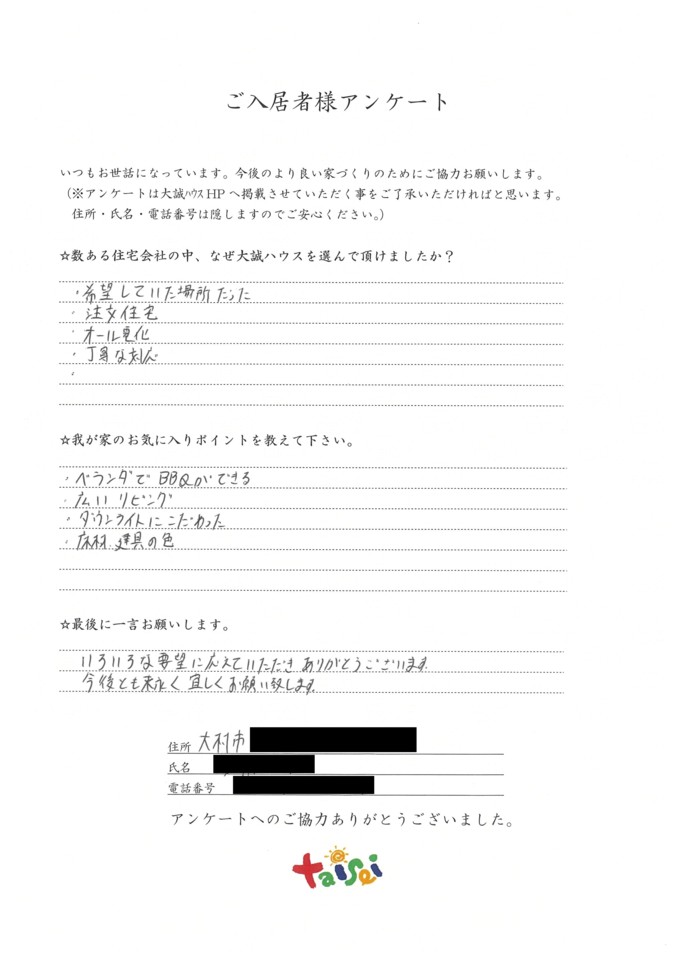 ご入居者様アンケート
いつもお世話になっています。今後のより良い家づくりのためにご協力お願いします。
（※アンケートは大誠ﾊｳｽHPへ掲載させていただく事をご了承いただければと思います。
住所・氏名・電話番号は隠しますのでご安心ください。）
☆数ある住宅会社の中、なぜ大誠ハウスを選んで頂けましたか？
・希望していた場所だった
・注文住宅
・オール電化
・丁寧な対応
・
☆我が家のお気に入りポイントを教えて下さい。
・ベランダでBBQができる
・広いリビング
・ダウンライトにこだわった
・床材、建具の色
☆最後に一言お願いします。
いろいろな要望に応えていただきありがとうございます。
今後とも末永く宜しくお願い致します。
住所 大村市
氏名
電話番号
アンケートへのご協力ありがとうございました。
taisei